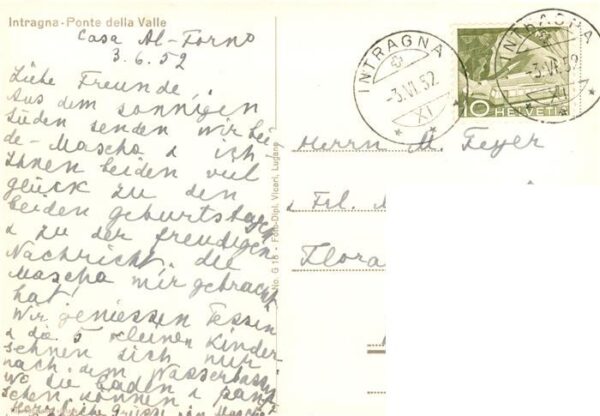 Intragna-Ponte della Valle
Casa Al-Forno
3.6.52
Liebe Freunde
Aus dem sonnigen
Süden senden wir bei-
de - Mascha & ich -
Ihnen beiden viel
glück zu den
beiden geburtstagen
& zu der freudigen
Nachricht, die
Mascha mir gebracht
hat!
Wir geniessen Tessin
& die 5 kleinen Kinder
sehnen sich nur
nach dem Wasserbassin
wo sie baden &
können &
Herzliche Grüsse
No. G 18 - Foto-Dipl. Vicari, Lugano
INTRAGNA
-3.VI.52
XI
INTRAGNA
-3.VI.52
XI
10 HELVETIA
Herrn M. Feyer
& Frl.
Flora